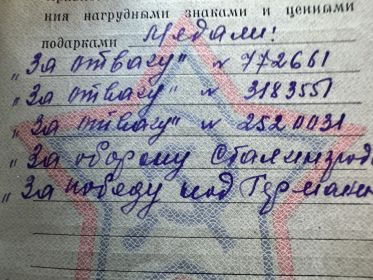 ния нагрудными знаками и ценными
подарками Медали:
„За отвагу" № 772661
„За отвагу" № 3183551
„За отвагу" № 2520031
„За оборону Сталинград
„За победу над Германи